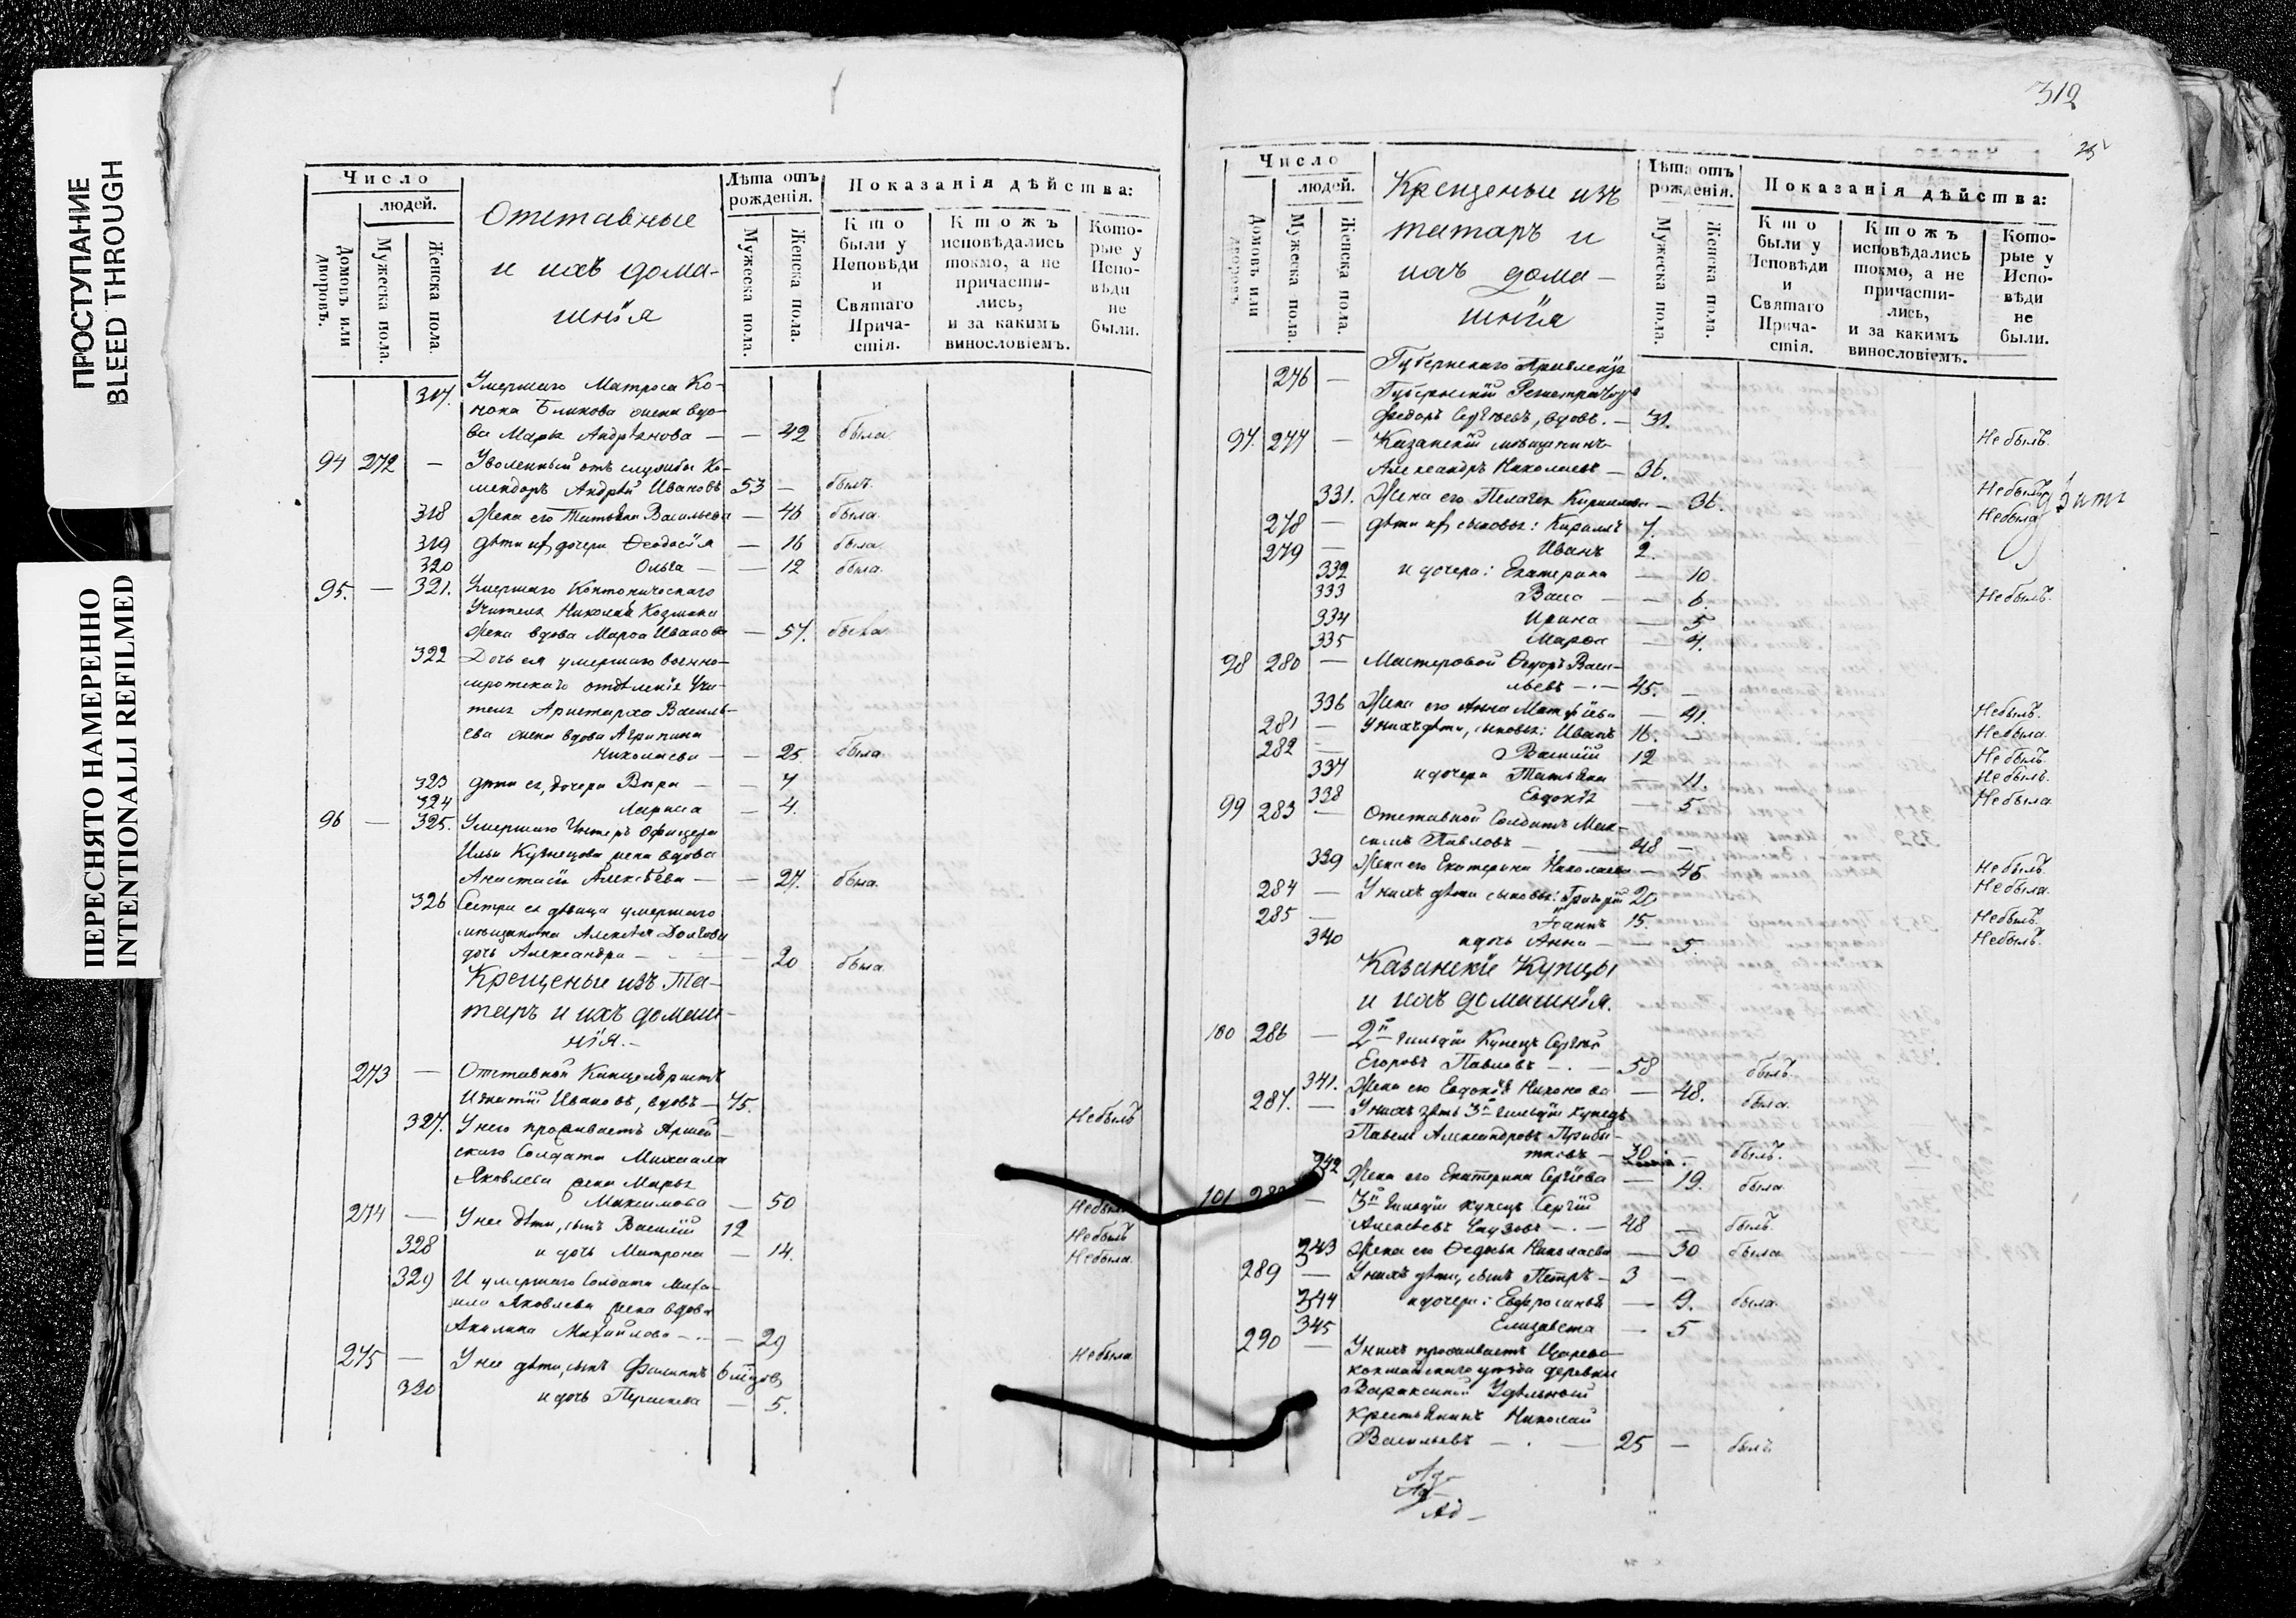 ПРОСТУПАНИЕ
BLEED THROUGH
ПЕРЕСНЯТО НАМЕРЕННО
INTENTIONALLI REFILMED
Число
людей.
Домовъ или дворовъ.
Мужеска пола.
Женска пола.
Отставные
и ихъ дома-
шнія
Лѣта отъ рожденія.
Мужеска пола.
Женска пола.
Показанія дѣйства:
Кто были у Исповѣди и Святаго Причастія.
Ктожъ исповѣдались токмо, а не причасти-лись, и за какимъ винословіемъ.
Кото-рые у Испо-вѣди не были.
317. Умершаго Матроса Ко-
нона Бликова жена вдо-
ва Марья Андрѣянова — — 42 была.
94 272 — Уволенный отъ службы Ко-
мендоръ Андрей Ивановъ 53 — былъ.
318 Жена его Татьяна Васильева — 46 была.
319 дѣти ихъ дочери Ѳеодосія — 16 была.
320 Ольга — — 12 была.
95. — 321. Умершаго Контоническаго
Учителя Николая Козмина
жена вдова Марѳа Иванова — 57. была.
322 Дочь ея умершаго военно-
сиротскаго отдѣленія Учи-
теля Аристарха Василь-
ева жена вдова Агрипина
Николаева — — 25. была.
323 дѣти ея, дочери Вѣра — — 7
324 Лариса — 4.
96 — 325. Умершаго Унтеръ Офицера
Ильи Кузнецова жена вдова
Анастасія Алексѣева — — 27. была.
326 Сестра ея дѣвица умершаго
мѣщанина Алексѣя Долгова
дочь Александра — — 20 была.
Крещеные изъ Та-
таръ и ихъ домаш-
нія.—
273 — Отставной Канцеляристъ
Игнатій Ивановъ, вдовъ — 75. Небылъ
327. У него проживаетъ Армей-
скаго Солдата Михаила
Яковлева жена Марья
Максимова — 50 Небыла
274 — У нее дѣти, сынъ Василій 12 Небылъ
328 и дочь Матрона — 14. Небыла.
329 И умершаго Солдата Миха-
ила Яковлева жена вдова
Акилина Михайлова — — 29 Небыла
275 — У нее дѣти, сынъ Филиппъ 6 мѣсяц.
320 и дочь Пераскева — 5.
312
25
Число
людей.
Домовъ или дворовъ.
Мужеска пола.
Женска пола.
Крещеные изъ
татаръ и
ихъ дома-
шнія
Лѣта отъ рожденія.
Мужеска пола.
Женска пола.
Показанія дѣйства:
Кто были у Исповѣди и Святаго Причастія.
Ктожъ исповѣдались токмо, а не причасти-лись, и за какимъ винословіемъ.
Кото-рые у Испо-вѣди не были.
276 — Губернскаго Правленія
Губернскій Регистраторъ
Ѳедоръ Сергѣевъ, вдовъ. — 31. Небылъ.
97. 277 — Казанскій мѣщанинъ
Александръ Николаевъ — 36. Небылъ
331. Жена его Пелагея Кирилова — 36. Небыла
278 — дѣти ихъ сыновья: Кирилъ 7.
279 — Иванъ 2.
332 и дочери: Екатерина — 10. Небылъ.
333 Васса — — 6.
334 Ирина — 5
335 Марѳа — 4.
98 280 — Мастеровой Ѳедоръ Васи-
льевъ — 45. — Небылъ.
336 Жена его Анна Матфіева — 41. Небыла.
281 — У нихъ дѣти, сыновья: Иванъ 16. — Небылъ.
282 — Василій 12 Небылъ.
337 и дочери Татьяна — 11. Небыла.
338 Евдокія — 5.
99 283 — Отставной Солдатъ Мак-
симъ Павловъ — 48 — Небылъ.
339 Жена его Екатерина Николаева — 45 Небыла.
284 — У нихъ дѣти сыновья: Григорій 20 Небылъ.
285 — Іоаннъ 15. Небылъ.
340 и дочь Анна — — 5.
Казанскіе Купцы
и ихъ домашнія.
100 286 — 2й гильдіи Купецъ Сергѣй
Егоровъ Павловъ — 58 былъ.
341. Жена его Евдокія Никонова — 48. была.
287. — У нихъ зять 3й гильдіи купецъ
Павелъ Александровъ Прибы-
тковъ — 30 — былъ.
342 Жена его Екатерина Сергѣева — 19. была
101 288 — 3й гильдіи купецъ Сергій
Алексѣевъ — 48 — былъ.
343 Жена его Ѳедосья Николаева — 30 была
289 — У нихъ дѣти, сынъ Петръ — 3 —
344 и дочери: Евфросинья — 9. была.
345 Елизавета — 5
290 — У нихъ проживаетъ Царево-
кокшайскаго уѣзда деревни
Вараксиной Удѣльный
Крестьянинъ Николай
Васильевъ — 25 — былъ